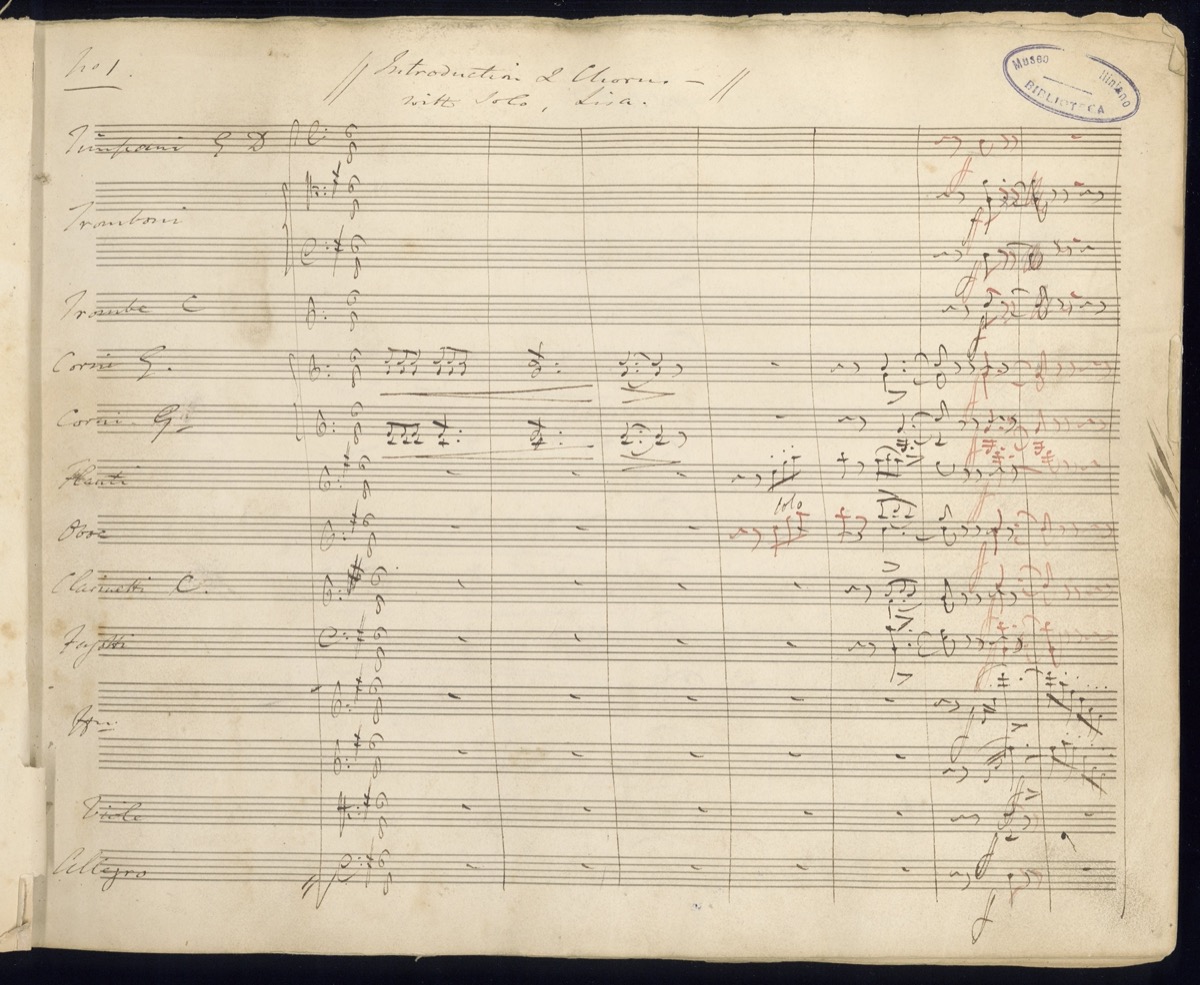 No 1.
Introduction & Chorus —
with Solo, Lisa.
Museo
lliniano
BIBLIOTECA
Timpani G D
Tromboni
Trombe C
Corni G.
Corni G
Flauti
Solo
Oboe
Clarinetti C.
Fagotti
Viole
Allegro